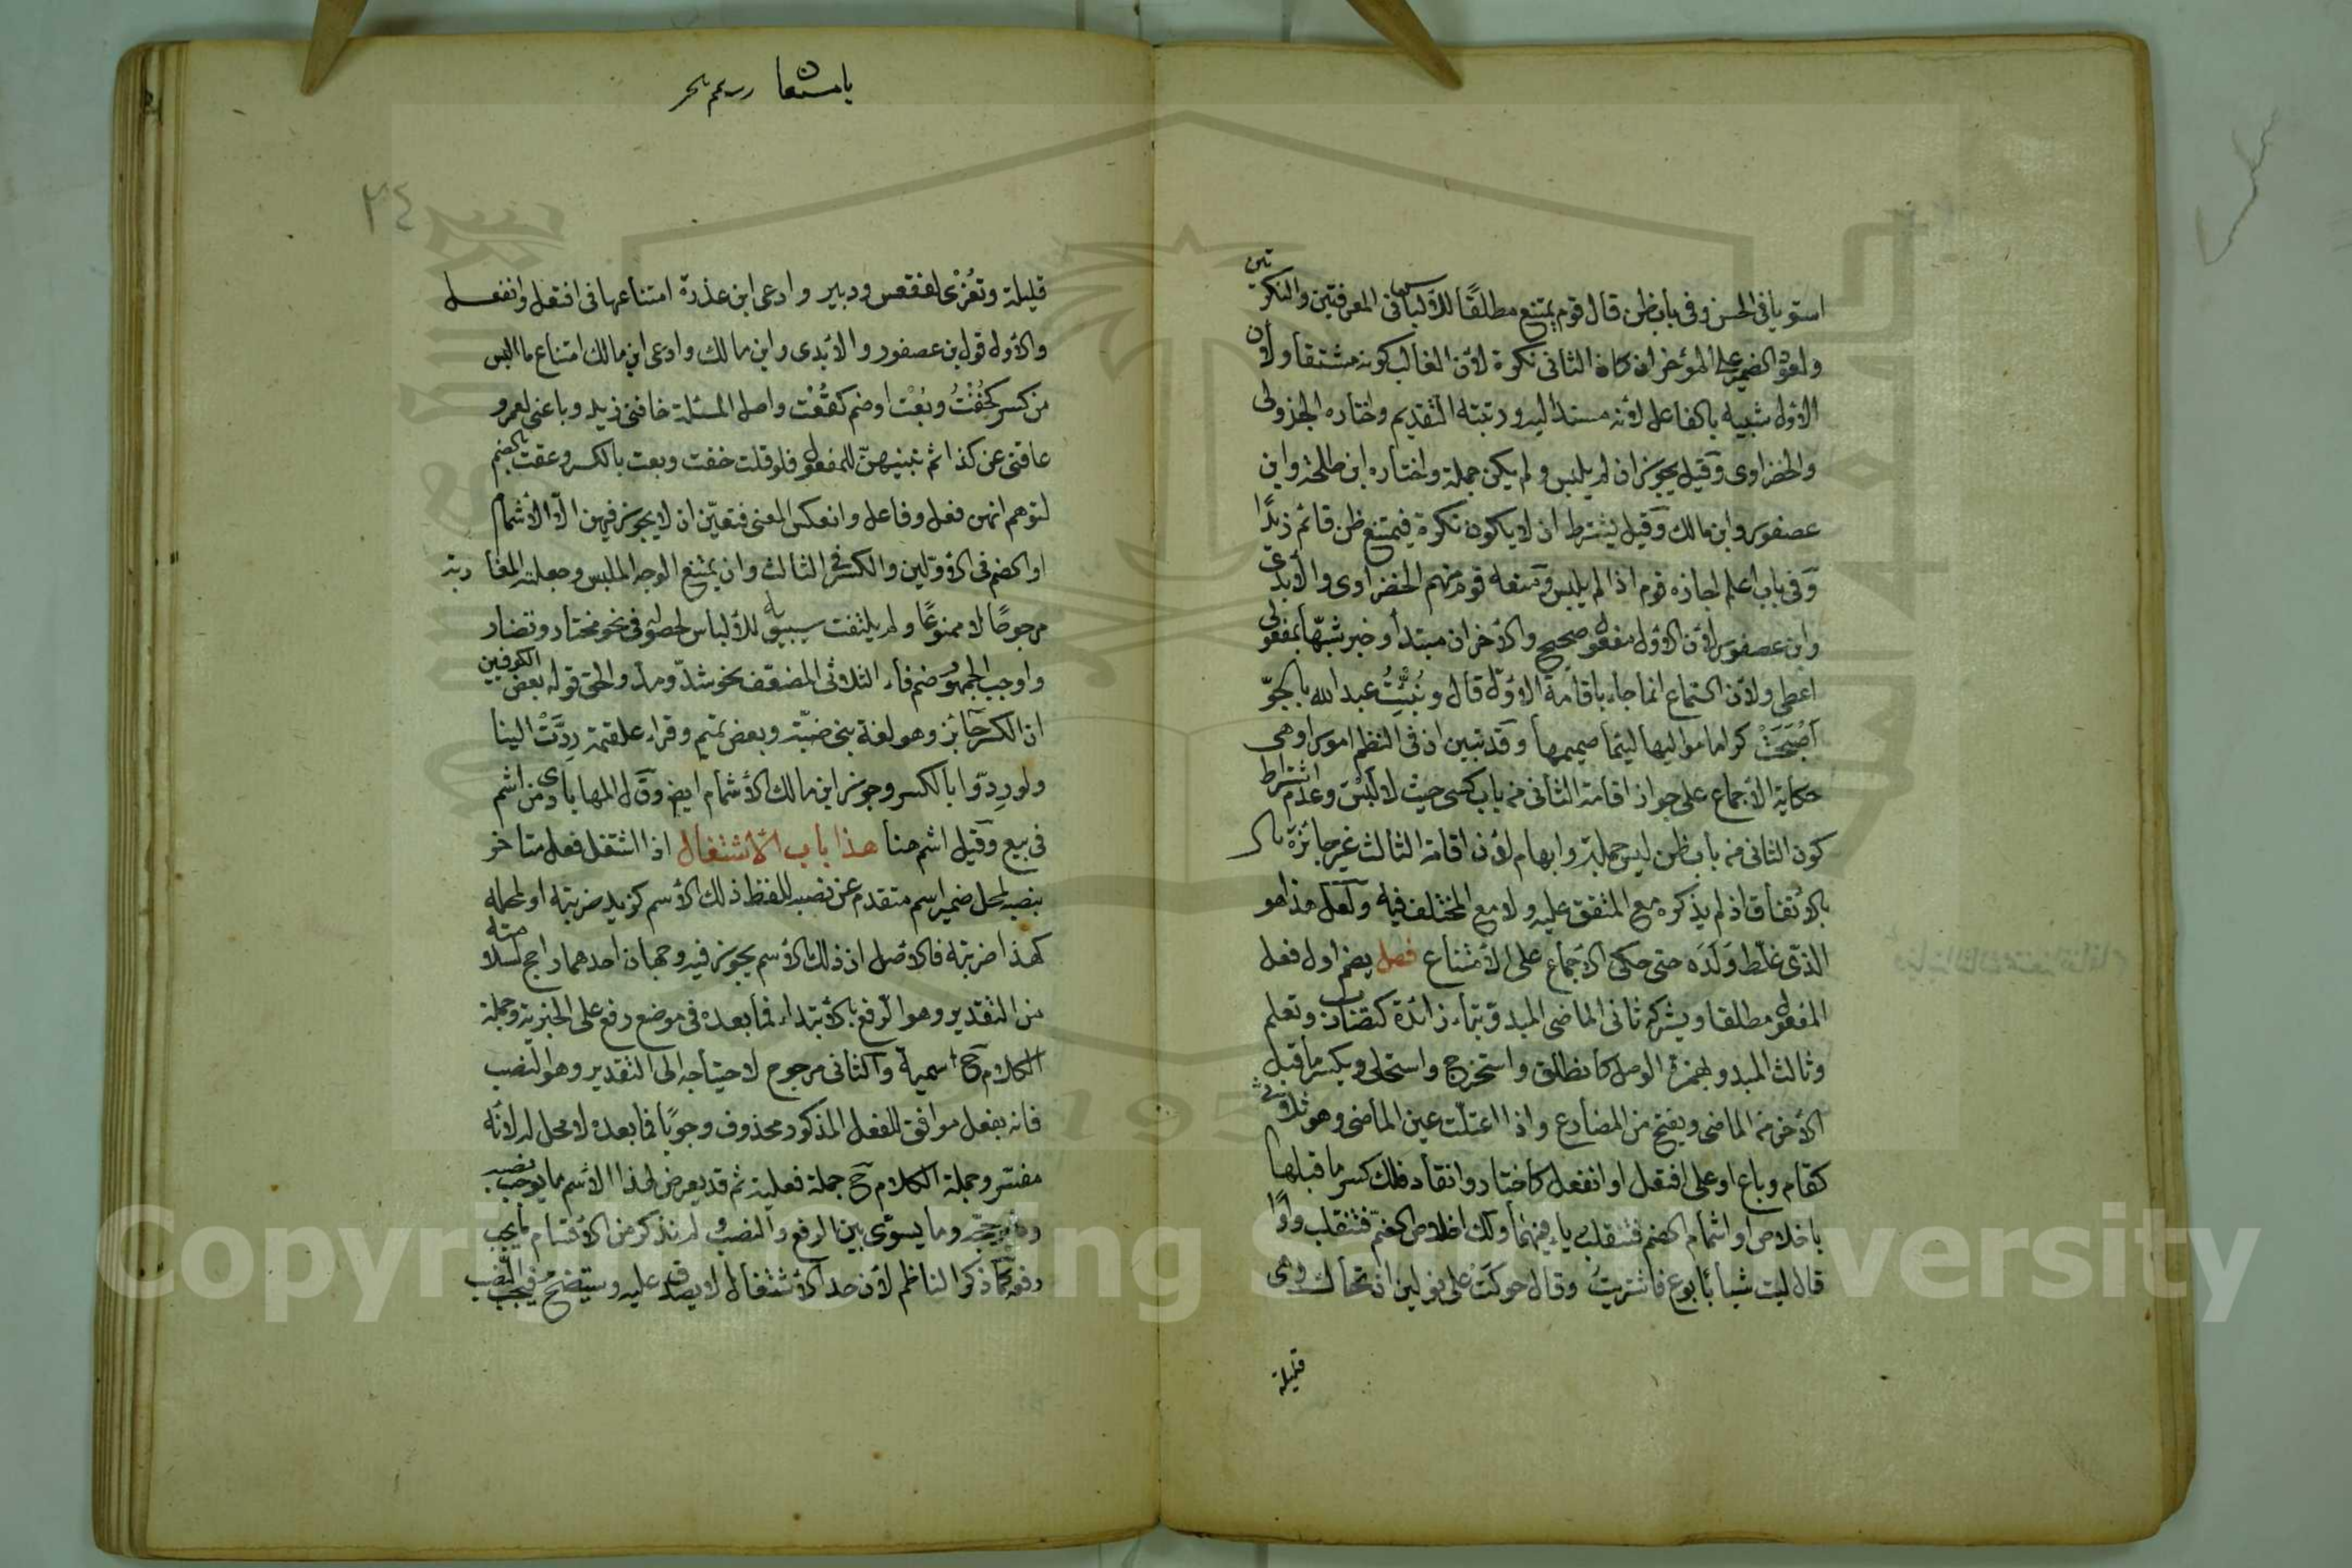 استويا في الحسن وفي باب ظن قال قوم يمتنع مطلقًا للالباس في المعرفتين والنكرتين
ولعود الضمير على المؤخر ان كان الثاني نكرة لان الغالب كونه مشتقا ولان
الاول شبيه بالفاعل لانه مسند اليه ورتبته التقديم واختاره الجزولى
والخضراوى وقيل يجوز ان لم يلبس ولم يكن جملة واختاره ابن طلحة وابن
عصفور وابن مالك وقيل يشترط ان لا يكون نكرة فيمتنع ظن قائم زيدًا
وفى باب اعلم اجازه قوم اذا لم يلبس ومنعه قوم منهم الخضراوى والأبدى
وابن عصفور لان الاول مفعول صحيح والاخران مبتدأ وخبر شبها بمفعولى
اعطى ولان السماع انما جاء باقامة الاول قال ونُبِّئتُ عبد الله بالجوّ
أصْبَحَتْ كراما مواليها ليئما صميمها وقد تبين ان في النظم امورا وهي
حكاية الاجماع على جواز اقامة الثانى من باب كسى حيث لا لبس وعدم اشتراط
كون الثانى من باب ظن ليس جملة وايهام ان اقامة الثالث غير جائزة
بالاتفاق اذ لم يذكره مع المتفق عليه ولا مع المختلف فيه ولعل هذا هو
الذى غلّط وَلَدَه حتى حكى الاجماع على الامتناع فصل يضم اول فعل
المفعول مطلقا ويشركه ثانى الماضى المبدو بتاء زائدة كتضارب وتعلم
وثالث المبدو بهمزة الوصل كانطلق واستخرج واستحلى ويكسر ما قبل
الاخر من الماضى ويفتح من المضارع واذا اعتلت عين الماضى وهو ثلاثى
كقام وباع او على افتعل او انفعل كاختار وانقاد فلك كسر ما قبلها
باخلاص او اشمام الضم فتنقلب ياء فيهما ولك اخلاص الضم فتنقلب واوًا
قال ليت شبابًا بوع فاشتريتُ وقال حوكَتْ على نولين اذ تحاك وهى
قليلة
٢٤
قليلة وتُعْزى لفقعس ودبير وادعى ابن عذرة امتناعها في افتعل وانفعل
والاول قول بن عصفور والأبدى وابن مالك وادعى ابن مالك امتناع ما البس
من كسر كخِفْتُ وبِعْت او ضم كعُقْت واصل المسئلة خافنى زيد وباعنى لعمرو
عاقنى عن كذا ثم تبنيهن للمفعول فلو قلت خفت وبعت بالكسر وعقت بالضم
لتوهم انهن فعل وفاعل وانعكس المعنى فتعين ان لا يجوز فيهن الا الاشمام
او الضم في الاولين والكسر في الثالث وان يمتنع الوجه الملبس وجعلته المغاربة
مرجوحًا لا ممنوعًا ولم يلتفت سيبويه للالباس لحصوله في نحو مختار وتضار
واوجب الجمهور ضم فاء الثلاثى المضعف نحو شدّ ومدّ والحق قول بعض الكوفيين
ان الكسر جائز وهو لغة بنى ضبّة وبعض تميم وقراء علقمة رِدَّتْ الينا
ولو رِدّوا بالكسر وجوز ابن مالك الاشمام ايض وقال المهابادى من اشم
في بيع وقيل اشم هنا هذا باب الاشتغال اذا اشتغل فعل متاخر
بنصبه لمحل ضمير اسم متقدم عن نصبه للفظ ذلك الاسم كزيد ضربته او لمحله
كهذا ضربته فالاصل ان ذلك الاسم يجوز فيه وجهان احدهما راجح لسلامته
من التقدير وهو الرفع بالابتداء فما بعده في موضع رفع على الخبرية وجملة
الكلام ح اسمية والثانى مرجوح لاحتياجه الى التقدير وهو النصب
فانه بفعل موافق للفعل المذكور محذوف وجوبًا فما بعده لا محل له لانه
مفسر وجملة الكلام ح جملة فعلية ثم قد يعرض لهذا الاسم ما يوجب نصبه
وما يرجحه وما يسوّى بين الرفع والنصب ولم نذكر من الاقسام ما يجب
رفعه كما ذكر الناظم لان حد الاشتغال لا يصدق عليه وسيتضح فيجب النصب
Copyright © King Saud University
195